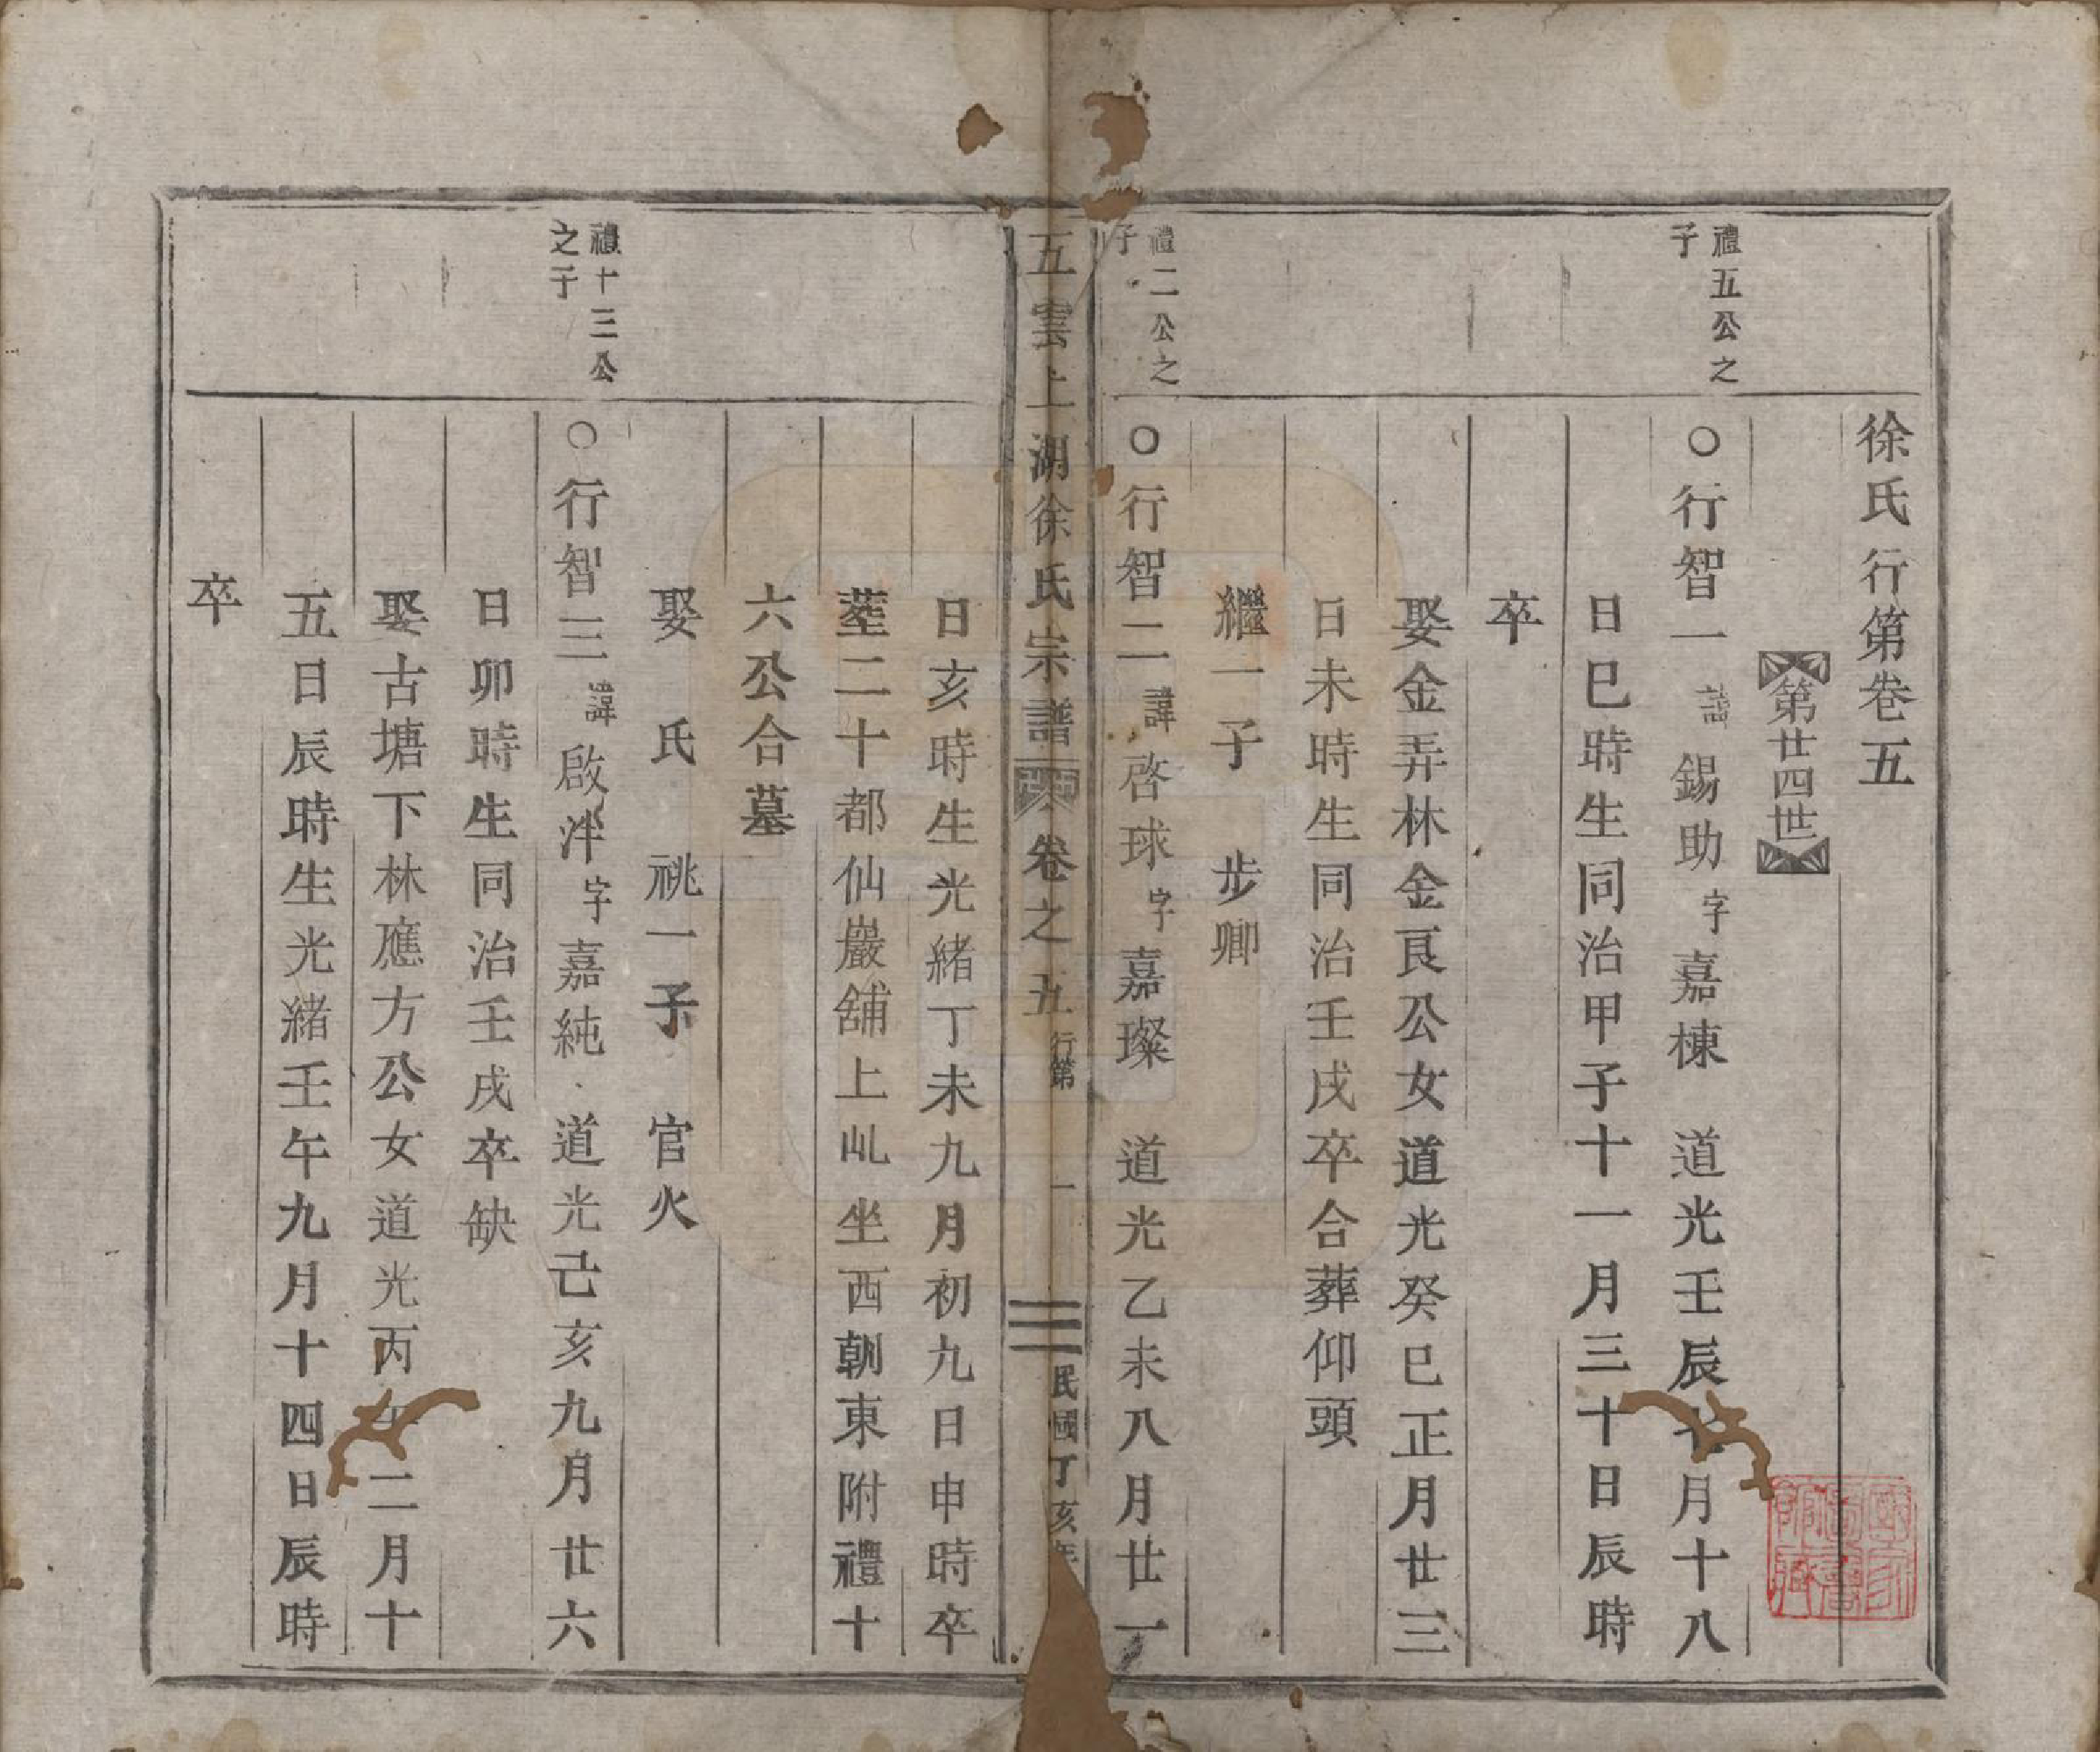 徐氏行第卷五
第廿四世
禮五公之
子
○行智一諱錫助字嘉棟 道光壬辰 月十八
日巳時生同治甲子十一月三十日辰時
卒
娶金弄林金良公女道光癸巳正月廿三
日未時生同治壬戌卒合葬仰頭
繼一子 步卿
禮二公之
子
○行智二諱啓球字嘉璨 道光乙未八月廿一
五雲上湖徐氏宗譜 卷之五 行第 一 民國丁亥年
日亥時生光緒丁未九月初九日申時卒
塟二十都仙巖舖上乢坐西朝東附禮十
六公合墓
娶 氏 祧一子 官火
禮十三公
之子
○行智三諱啟泮字嘉純 道光己亥九月廿六
日卯時生同治壬戌卒缺
娶古塘下林應方公女道光丙午二月十
五日辰時生光緒壬午九月十四日辰時
卒